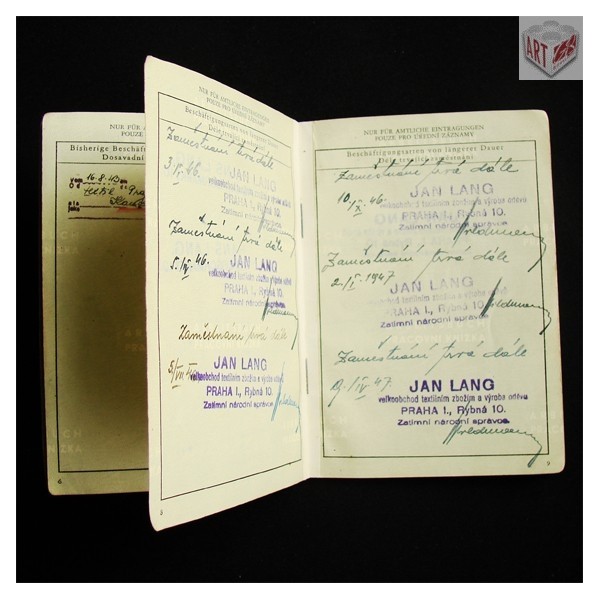 ART
NUR FÜR AMTLICHE EINTRAGUNGEN
POUZE
Bisherige
Dosavadní
vom 16.8.43
Od
6
NUR FÜR AMTLICHE EINTRAGUNGEN
POUZE PRO ÚŘEDNÍ ZÁZNAMY
Beschäftigungsarten von längerer Dauer
Déle trvající zaměstnání
Zaměstnání trvá dále
3./II. 46.
JAN LANG
velkoobchod textilním zbožím a výroba oděvů
PRAHA I., Rybná 10.
Zatímní národní správce
Zaměstnání trvá dále
5./IV. 46.
JAN LANG
velkoobchod textilním zbožím a výroba oděvů
PRAHA I., Rybná 10.
Zatímní národní správce
Zaměstnání trvá dále
5/VII
JAN LANG
velkoobchod textilním zbožím a výroba oděvů
PRAHA I., Rybná 10.
Zatímní národní správce
8
NUR FÜR AMTLICHE EINTRAGUNGEN
POUZE PRO ÚŘEDNÍ ZÁZNAMY
Beschäftigungsarten von längerer Dauer
Déle trvající zaměstnání
Zaměstnání trvá dále
10./X. 46.
JAN LANG
velkoobchod textilním zbožím a výroba oděvů
PRAHA I., Rybná 10.
Zatímní národní správce
Zaměstnání trvá dále
2./I. 1947
JAN LANG
velkoobchod textilním zbožím a výroba oděvů
PRAHA I., Rybná 10.
Zatímní národní správce
Zaměstnání trvá dále
9./IV. 47.
JAN LANG
velkoobchod textilním zbožím a výroba oděvů
PRAHA I., Rybná 10.
Zatímní národní správce
9